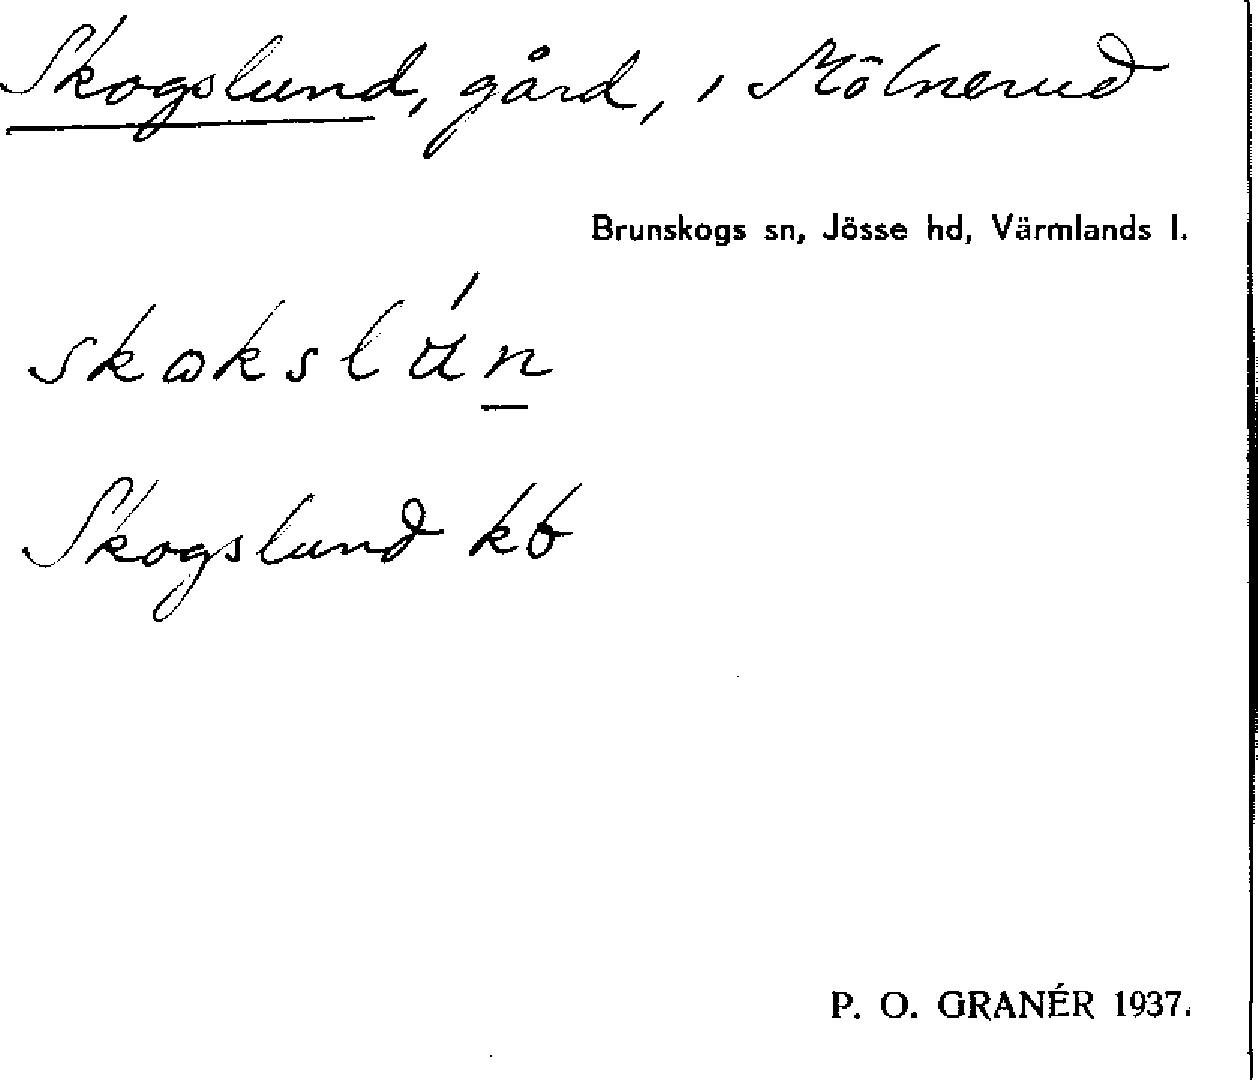 Skogslund, gård, i Mölnerud
Brunskogs sn, Jösse hd, Värmlands l.
skωkslún
Skogslund kb
P. O. GRANÉR 1937.